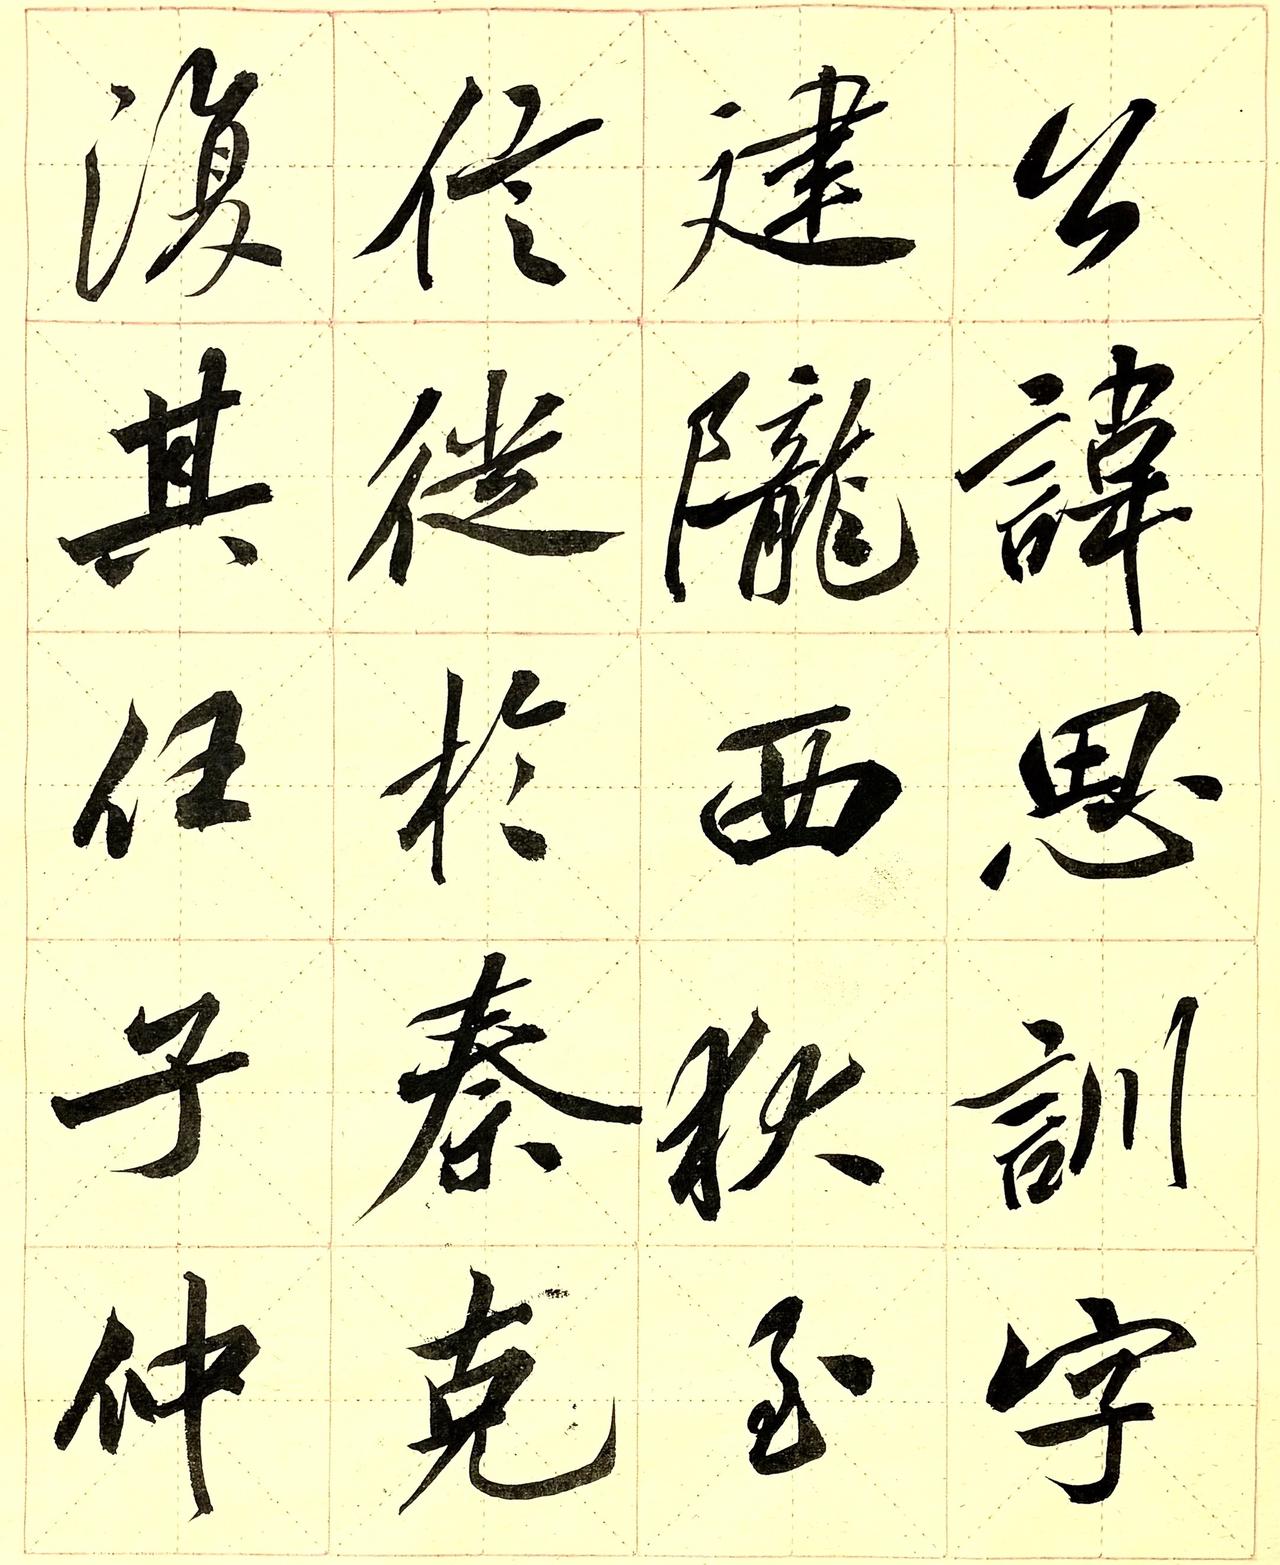 公諱思訓字
建隴西狄至
信徙於秦克
復其任子仲